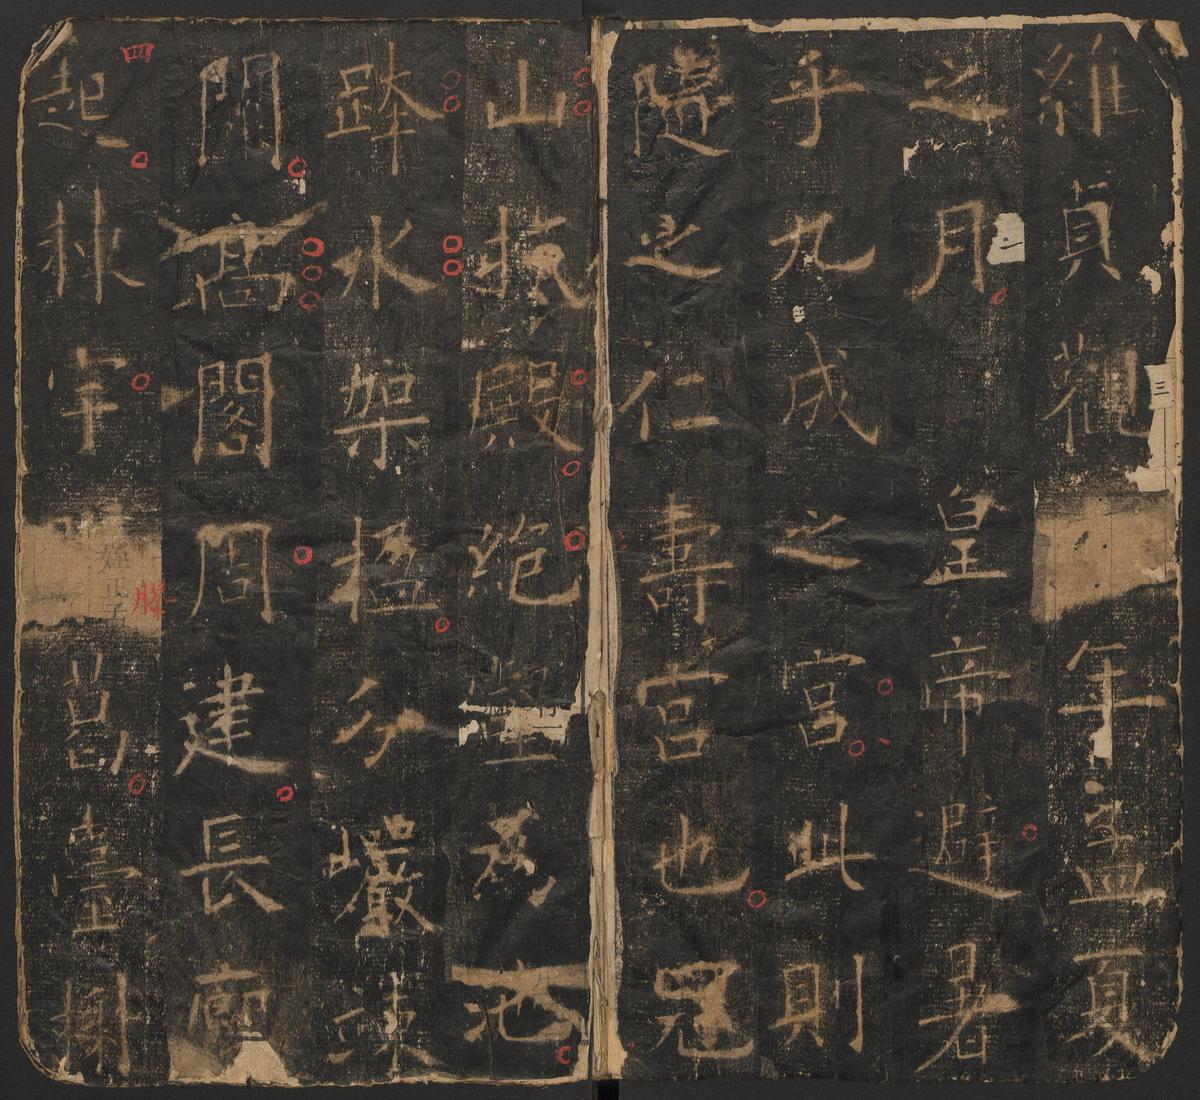 維貞觀年孟夏
之月皇帝避暑
乎九成之宮此則
隨之仁壽宮也冠
山抗殿絕壑為池
跨水架楹分巖竦
高閣周建長廊
四起棟宇膠葛臺榭